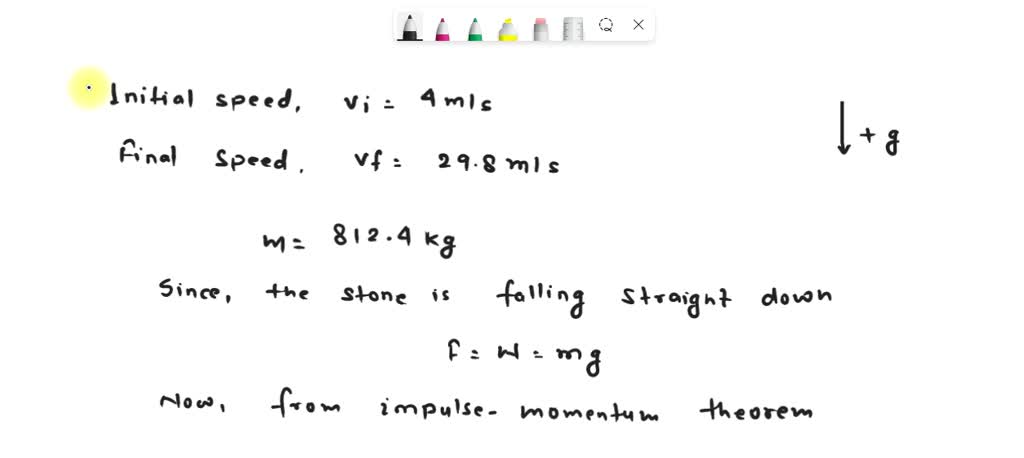 Initial speed, vi = 4 m/s
+ g
Final speed, vf = 29.8 m/s
m = 812.4 kg
Since, the stone is falling straight down
F = W = mg
Now, from impulse-momentum theorem